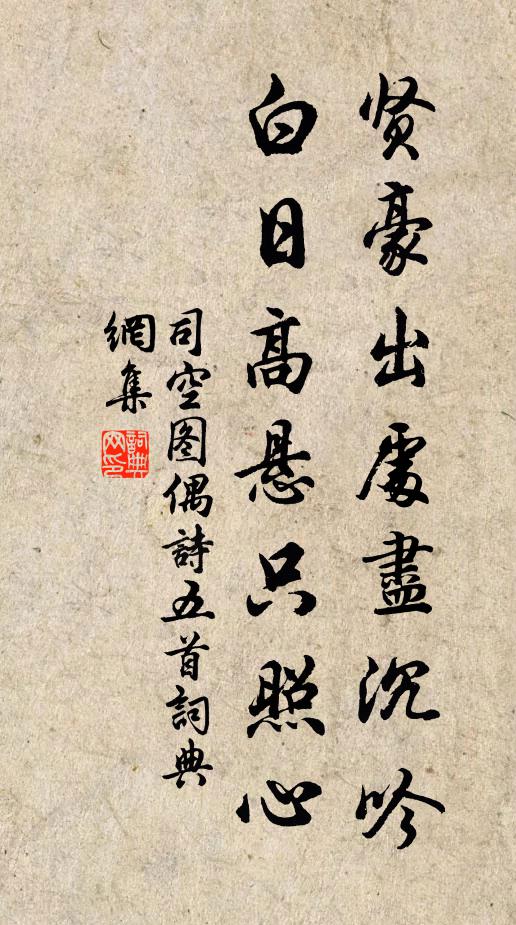 贤豪出處盡沉吟
白日高悬只照心
司空图偶詩五首詞典
網集
詞典
网印